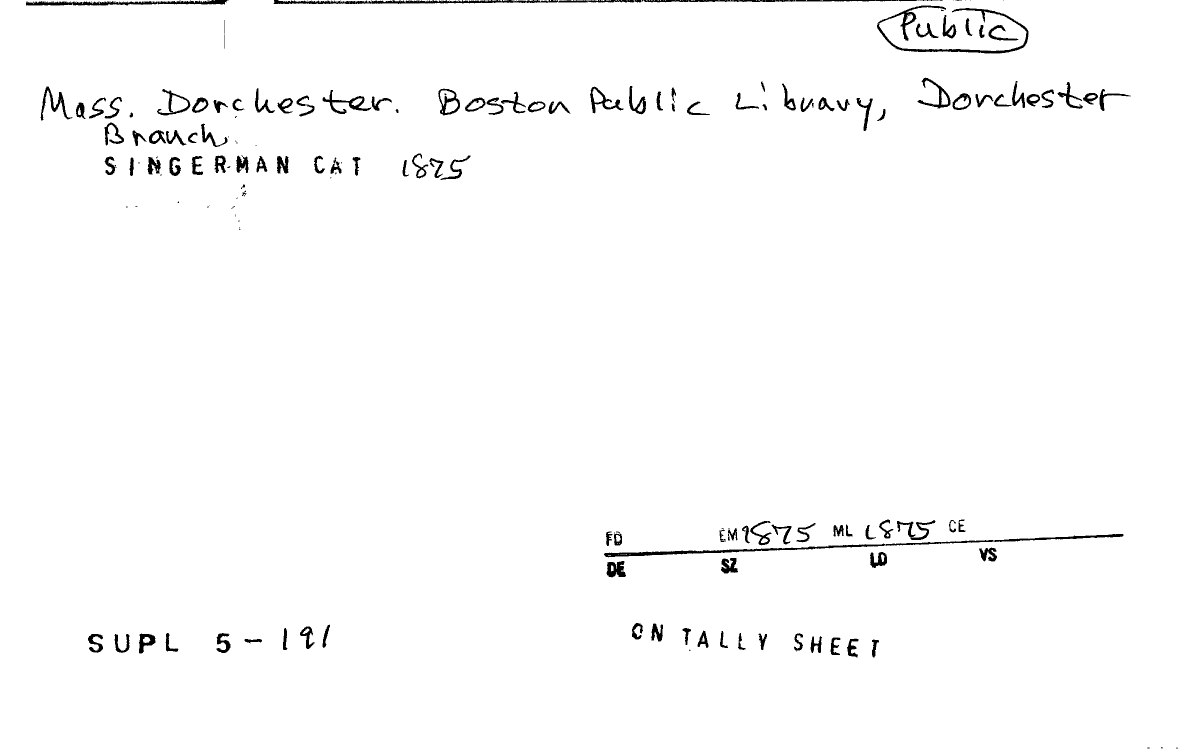 Public
Mass. Dorchester. Boston Public Library, Dorchester
Branch.
SINGERMAN CAT 1875
FD EM 1875 ML 1875 CE
DE SZ LD VS
SUPL 5-191
ON TALLY SHEET